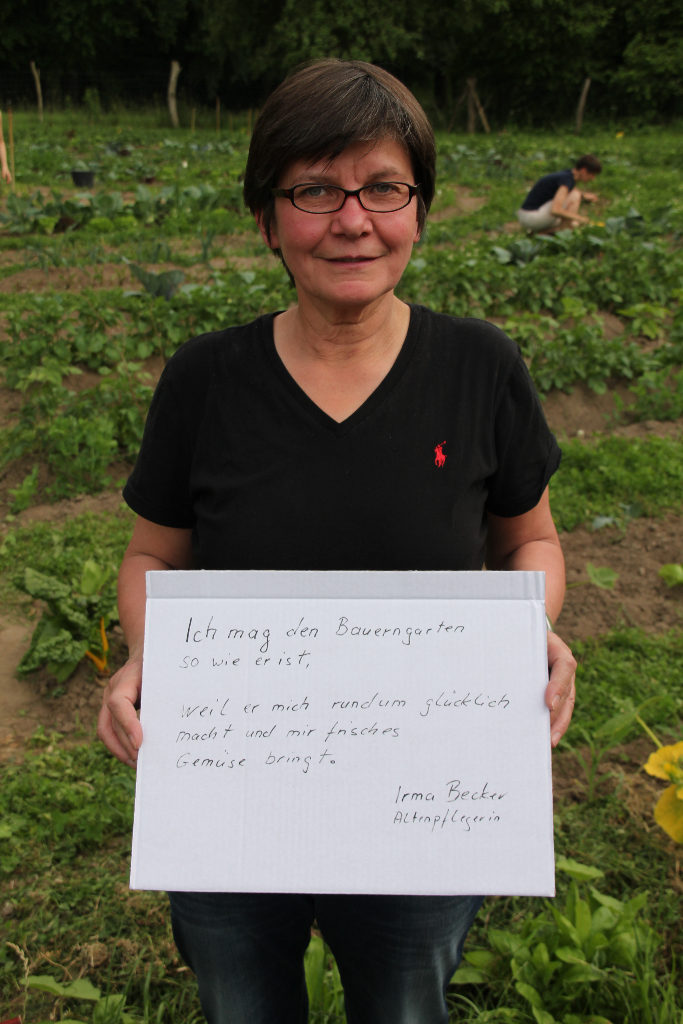 Ich mag den Bauerngarten
so wie er ist,
weil er mich rundum glücklich
macht und mir frisches
Gemüse bringt.
Irma Becker
Altenpflegerin